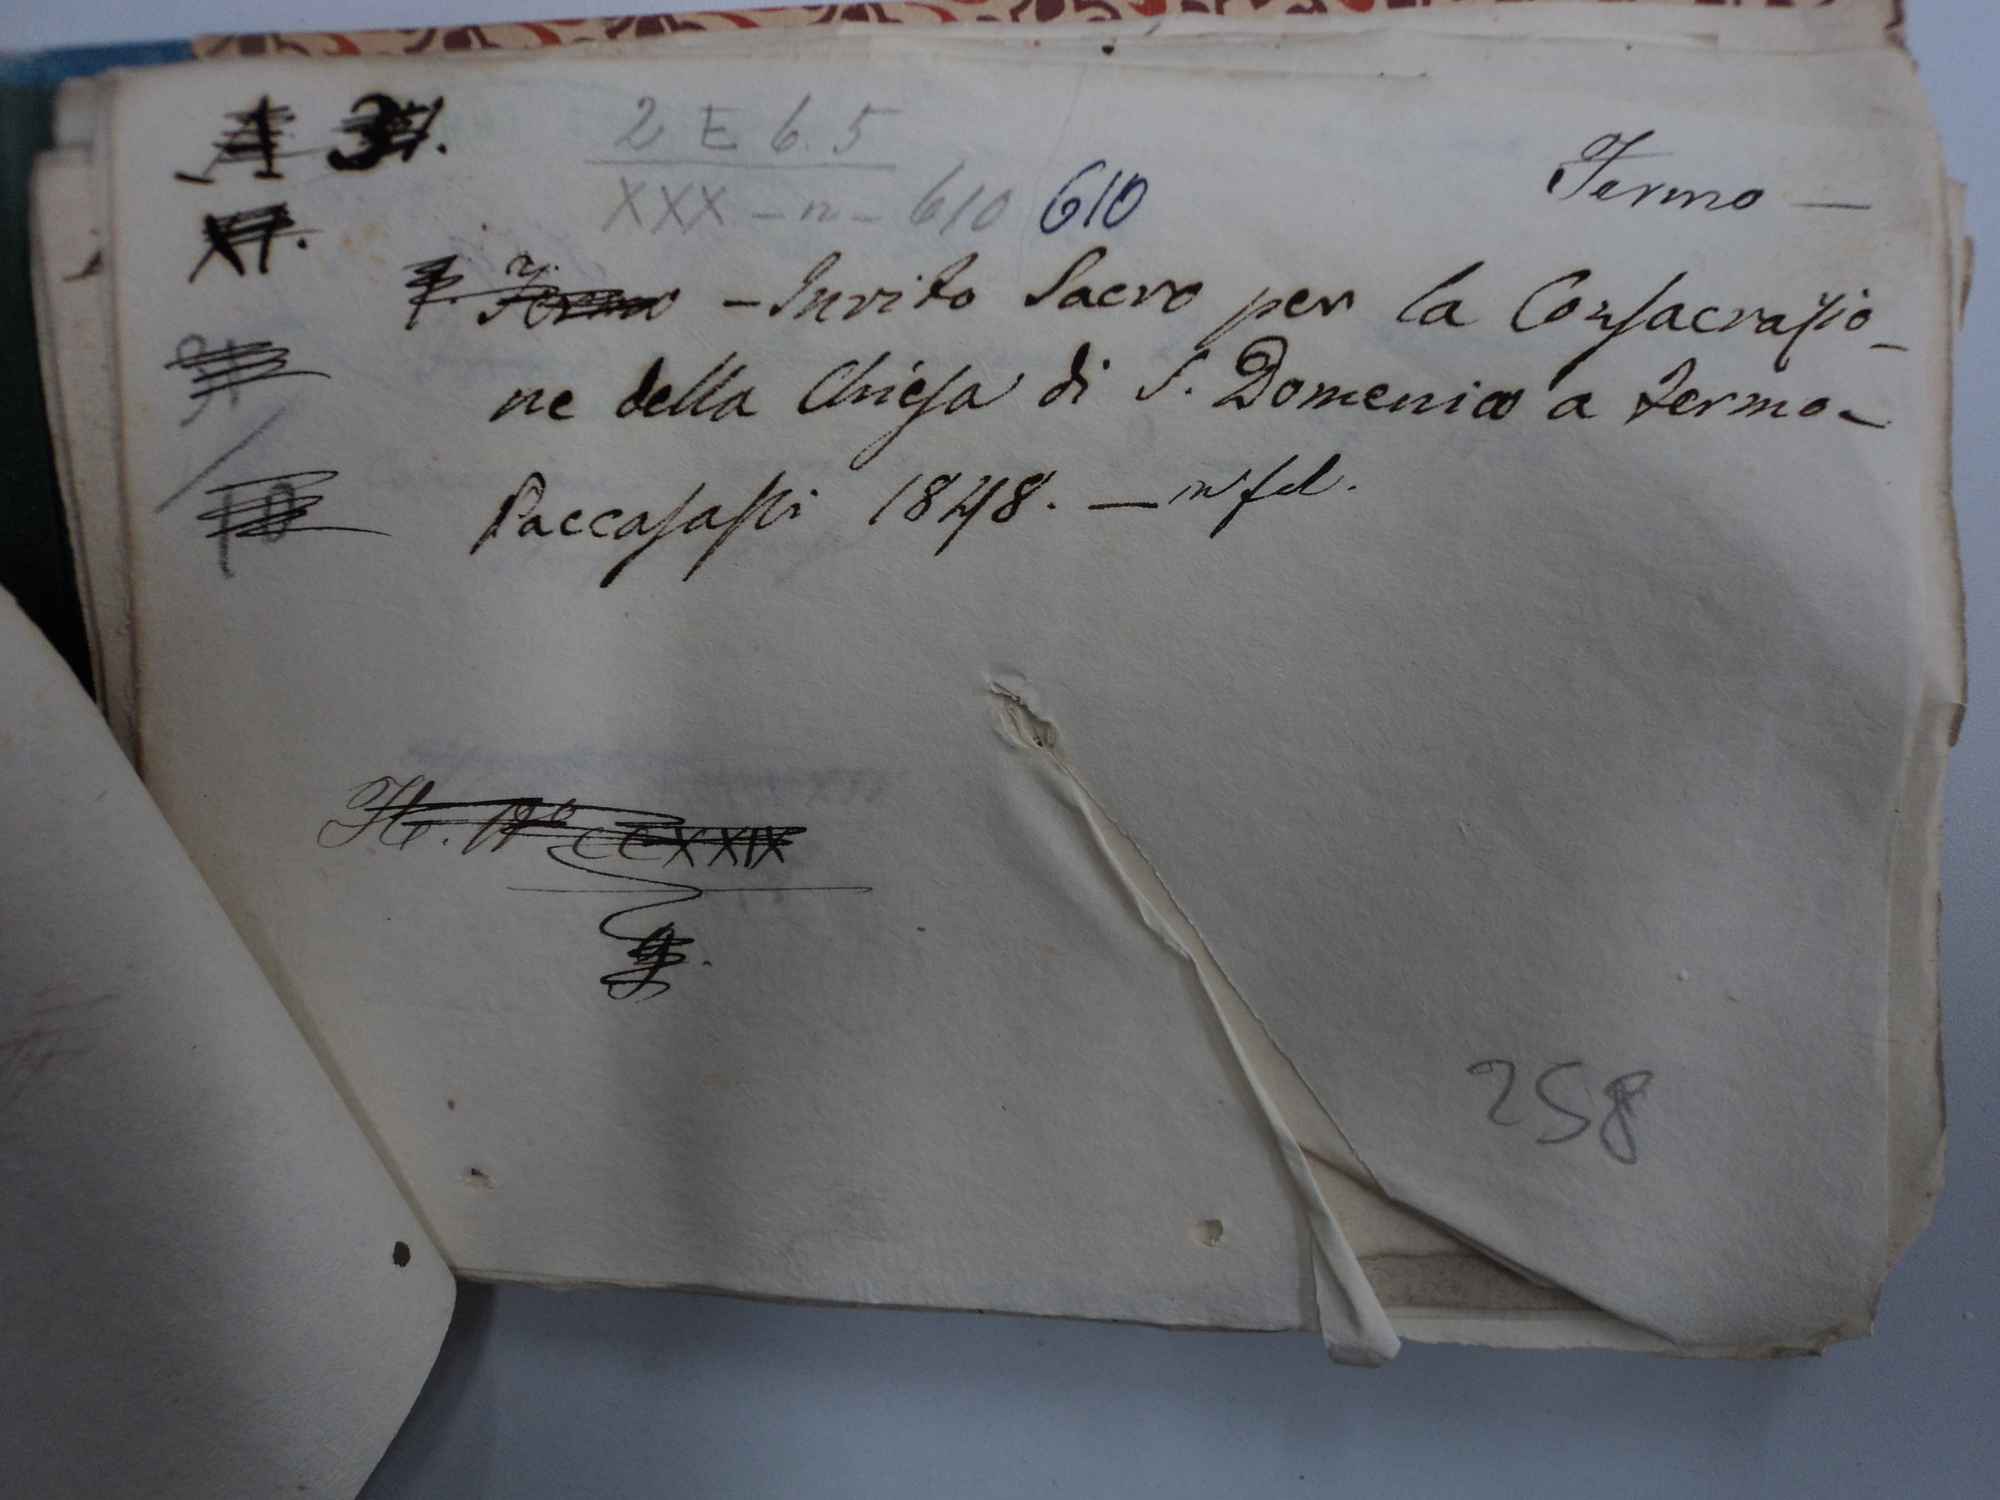 2 E 6. 5
XXX - n - 610 610
Fermo —
Fermo - Invito Sacro per la Consacrazio-
ne della Chiesa di S. Domenico a Fermo -
Paccasassi 1848. —
H. N° CCXXIX
258